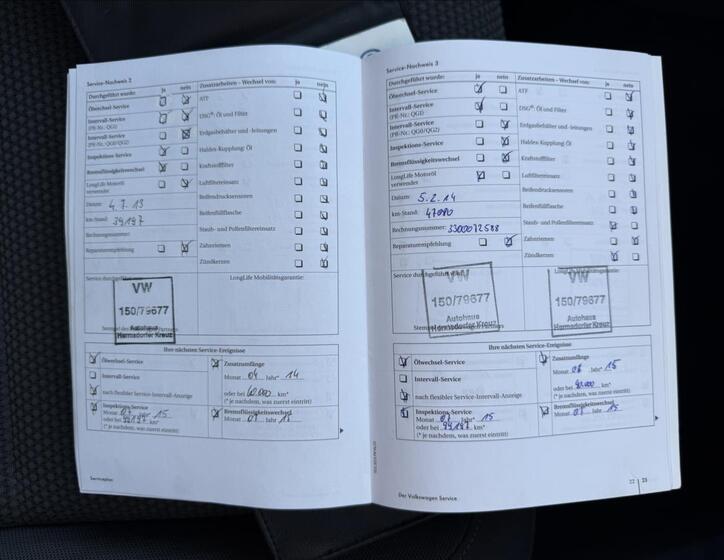 Service-Nachweis 2
Durchgeführt wurde: ja nein
Ölwechsel-Service
Intervall-Service
(PR-Nr.: QGI)
Intervall-Service
(PR-Nr.: QG0/QG2)
Inspektions-Service
Bremsflüssigkeitswechsel
LongLife Motoröl
verwendet
Datum: 4.7.13
km-Stand: 39197
Rechnungsnummer:
Reparaturempfehlung
Zusatzarbeiten - Wechsel von: ja nein
ATF
DSG®: Öl und Filter
Erdgasbehälter und -leitungen
Haldex-Kupplung: Öl
Kraftstofffilter
Luftfiltereinsatz
Reifendrucksensoren
Reifenfüllflasche
Staub- und Pollenfiltereinsatz
Zahnriemen
Zündkerzen
LongLife Mobilitätsgarantie:
VW
150/79677
Autohaus
Hermsdorfer Kreuz
Ihre nächsten Service-Ereignisse
Ölwechsel-Service
Intervall-Service
nach flexibler Service-Intervall-Anzeige
Inspektions-Service
oder bei 99197 km*
(* je nachdem, was zuerst eintritt)
Zusatzumfänge
Monat 04 Jahr* 14
oder bei 60.000 km*
(* je nachdem, was zuerst eintritt)
Bremsflüssigkeitswechsel
Serviceplan
Service-Nachweis 3
Durchgeführt wurde: ja nein
Ölwechsel-Service
Intervall-Service
(PR-Nr.: QGI)
Intervall-Service
(PR-Nr.: QG0/QG2)
Inspektions-Service
Bremsflüssigkeitswechsel
LongLife Motoröl
verwendet
Datum: 5.2.14
km-Stand: 47080
Rechnungsnummer: 3300072588
Reparaturempfehlung
Zusatzarbeiten - Wechsel von: ja nein
ATF
DSG®: Öl und Filter
Erdgasbehälter und -leitungen
Haldex-Kupplung: Öl
Kraftstofffilter
Luftfiltereinsatz
Reifendrucksensoren
Reifenfüllflasche
Staub- und Pollenfiltereinsatz
Zahnriemen
Zündkerzen
VW
150/79677
Autohaus
Hermsdorfer Kreuz
VW
150/79677
Autohaus
Hermsdorfer Kreuz
Ihre nächsten Service-Ereignisse
Ölwechsel-Service
Intervall-Service
nach flexibler Service-Intervall-Anzeige
Inspektions-Service
Monat 07 Jahr* 15
oder bei 99197 km*
(* je nachdem, was zuerst eintritt)
Zusatzumfänge
Jahr* 15
oder bei 90.000 km*
(* je nachdem, was zuerst eintritt)
Bremsflüssigkeitswechsel
Monat 07 Jahr 15
Der Volkswagen Service
22 23